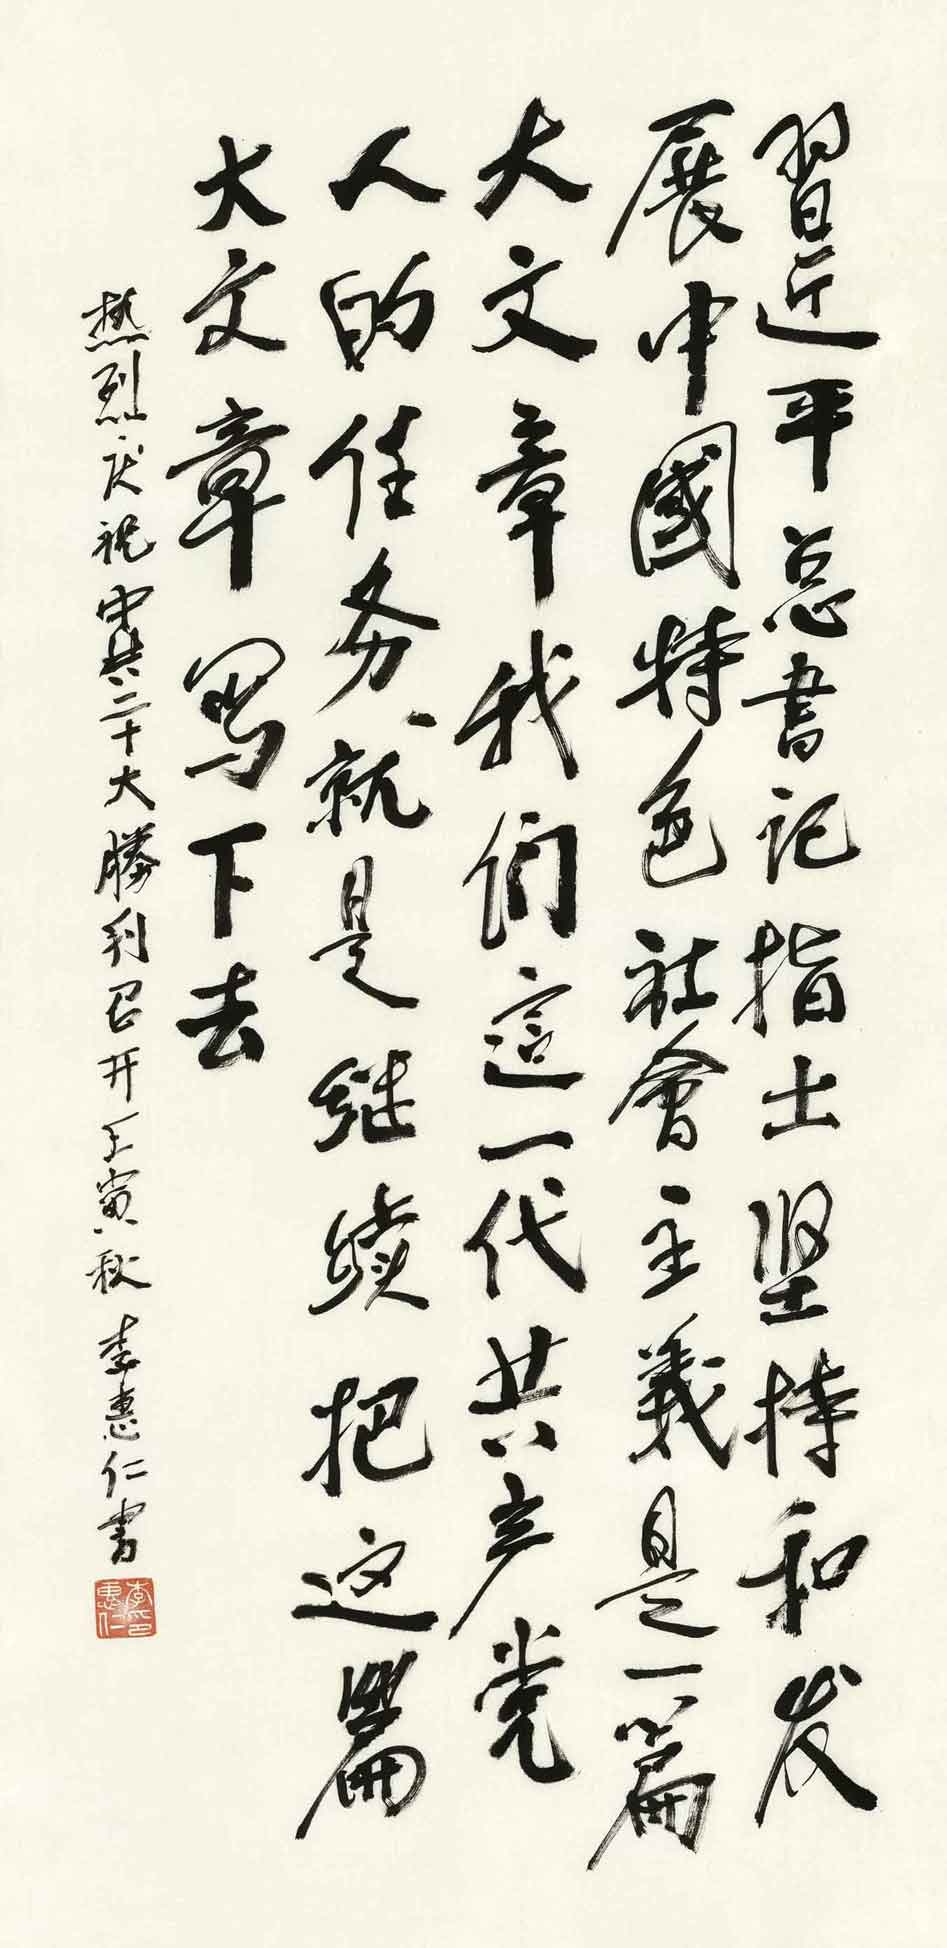 習近平总書记指出坚持和发
展中國特色社會主義是一篇
大文章我们這一代共产党
人的任务就是继續把这篇
大文章写下去
热烈庆祝中共二十大勝利召开壬寅秋李惠仁書
李惠仁印